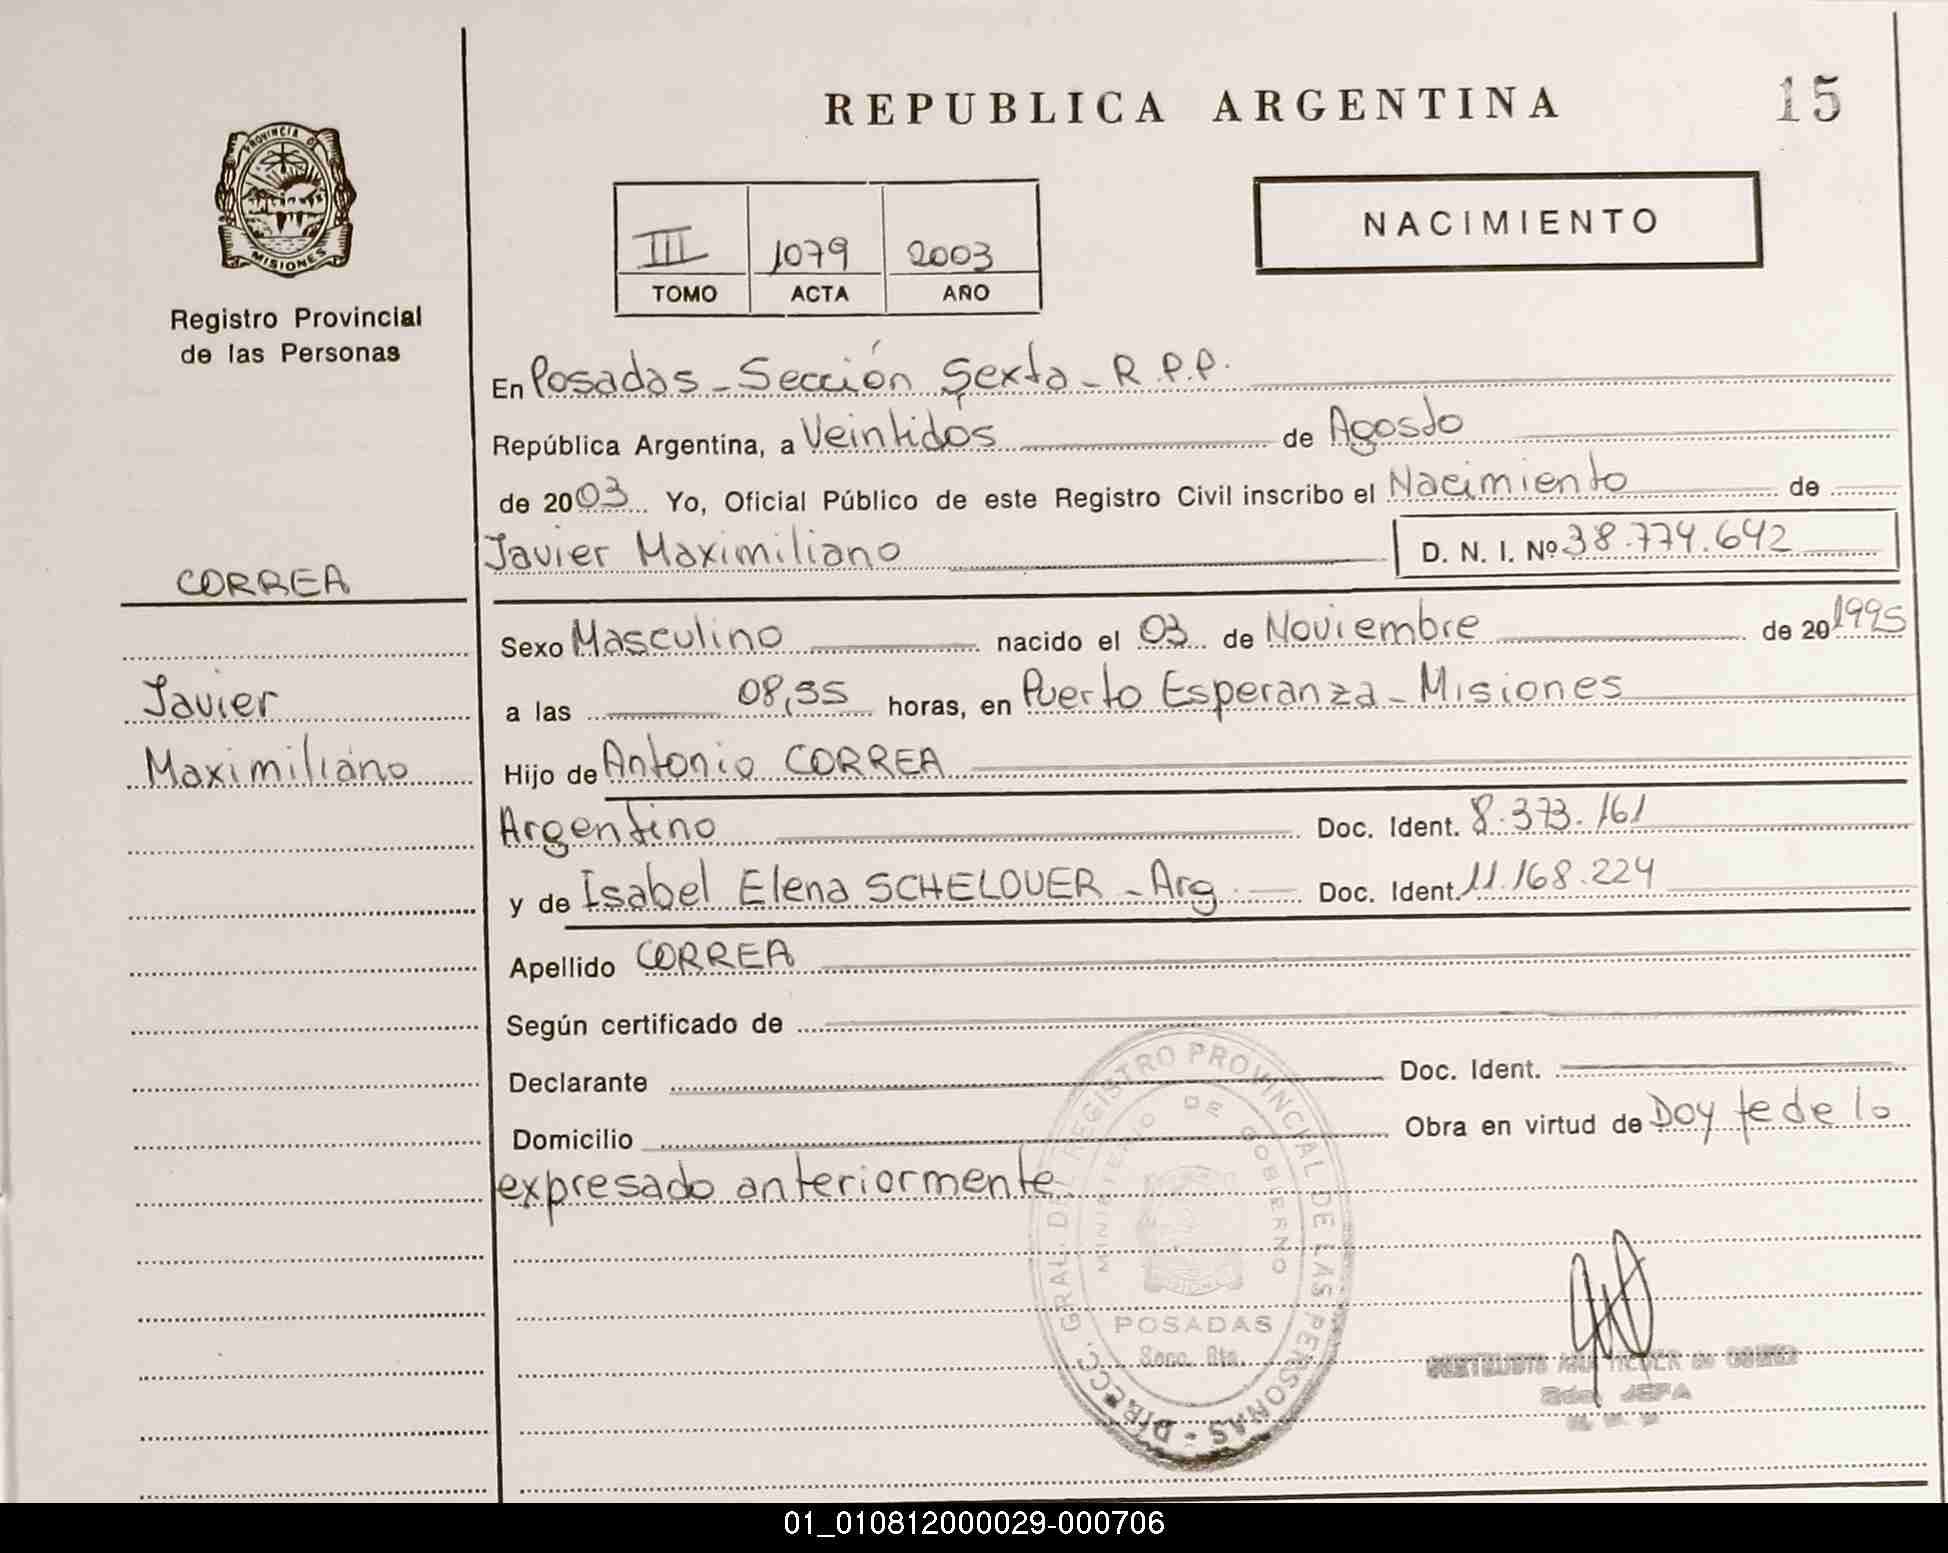 REPUBLICA ARGENTINA
15
PROVINCIA DE
MISIONES
Registro Provincial
de las Personas
NACIMIENTO
III 1079 2003
TOMO ACTA AÑO
En Posadas - Sección Sexta - R.P.P.
República Argentina, a Veintidós de Agosto
de 2003 Yo, Oficial Público de este Registro Civil inscribo el Nacimiento de
Javier Maximiliano D. N. I. Nº 38.774.642
CORREA
Sexo Masculino nacido el 03 de Noviembre de 20 1995
Javier
a las 08,35 horas, en Puerto Esperanza - Misiones
Maximiliano
Hijo de Antonio CORREA
Argentino Doc. Ident. 8.373.161
y de Isabel Elena SCHELOUER - Arg. Doc. Ident. 11.168.224
Apellido CORREA
Según certificado de
Declarante Doc. Ident.
Domicilio Obra en virtud de Doy fe de lo
expresado anteriormente.
DIRECC. GRAL. DEL REGISTRO PROVINCIAL DE LAS PERSONAS -
MINISTERIO DE GOBIERNO
POSADAS
Secc. 6ta.
JEFA
01_010812000029-000706